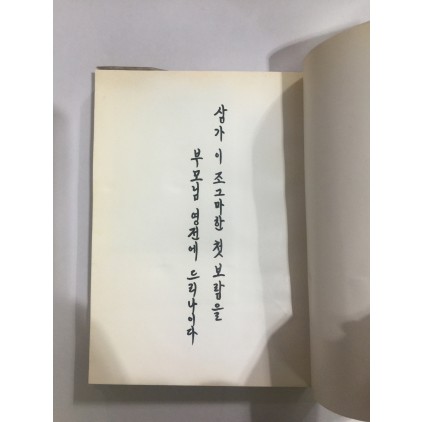 삼가 이 조그마한 첫 보람을
부모님 영전에 드리나이다